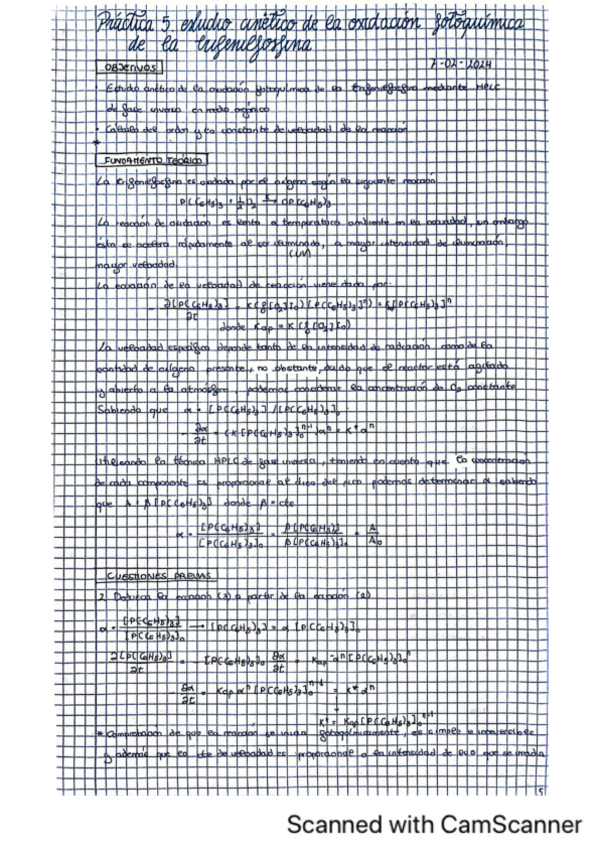 Práctica 5. estudio cinético de la oxidación fotoquímica
de la trifenilfosfina
7-02-2024
OBJETIVOS
· Estudio cinético de la oxidación fotoquímica de la trifenilfosfina mediante HPLC
de fase inversa en medio orgánico
· Cálculo del orden y la constante de velocidad de la reacción
*
FUNDAMENTO TEÓRICO
La trifenilfosfina es oxidada por el oxígeno según la siguiente reacción
P(C6H5)3 + 1/2 O2 → OP(C6H5)3
La reacción de oxidación es lenta a temperatura ambiente en la oscuridad, sin embargo
ésta se acelera rápidamente al ser iluminada, a mayor intensidad de iluminación,
(UV)
mayor velocidad.
La ecuación de la velocidad de reacción viene dada por:
- ∂[P(C6H5)3]/∂t = K(f[O2]I0)[P(C6H5)3]^n = K[P(C6H5)3]^n
donde Kap = K(f[O2]I0)
La velocidad específica depende tanto de la intensidad de radiación como de la
cantidad de oxígeno presente, no obstante, dado que el reactor está agitado
y abierto a la atmósfera, podemos considerar la concentración de O2 constante
Sabiendo que α = [P(C6H5)3]/[P(C6H5)3]0
- ∂α/∂t = (K[P(C6H5)3]0^n-1)α^n = K*α^n
Utilizando la técnica HPLC de fase inversa, teniendo en cuenta que la concentración
de cada componente es proporcional al área del pico podemos determinar α sabiendo
que A = β[P(C6H5)3] donde β = cte
α = [P(C6H5)3]/[P(C6H5)3]0 = β[P(C6H5)3]/β[P(C6H5)3]0 = A/A0
CUESTIONES PREVIAS
2. Deduzca la ecuación (3) a partir de la ecuación (2)
α = [P(C6H5)3]/[P(C6H5)3]0 → [P(C6H5)3] = α [P(C6H5)3]0
∂[P(C6H5)3]/∂t = - [P(C6H5)3]0 ∂α/∂t = Kap α^n [P(C6H5)3]0^n
∂α/∂t = Kap α^n [P(C6H5)3]0^n-1 = K* α^n
K* = Kap[P(C6H5)3]0^n-1
* Comprobación de que la reacción se inicia fotoquímicamente, es simple e irreversible
y además que la cte de velocidad es proporcional a la intensidad de que se irradia
5
Scanned with CamScanner